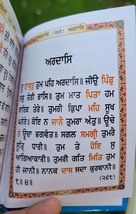 ਅਰਦਾਸਿ
ਤੂ ਠਾਕੁਰੁ ਤੁਮ ਪਹਿ ਅਰਦਾਸਿ॥ ਜੀਉ ਪਿੰਡੁ
ਸਭੁ ਤੇਰੀ ਰਾਸਿ॥ ਤੁਮ ਮਾਤ ਪਿਤਾ ਹਮ
ਬਾਰਿਕ ਤੇਰੇ॥ ਤੁਮਰੀ ਕ੍ਰਿਪਾ ਮਹਿ ਸੂਖ
ਘਨੇਰੇ॥ ਕੋਇ ਨ ਜਾਨੈ ਤੁਮਰਾ ਅੰਤੁ॥ ਊਚੇ
ਤੇ ਊਚਾ ਭਗਵੰਤ॥ ਸਗਲ ਸਮਗ੍ਰੀ ਤੁਮਰੈ
ਸੂਤ੍ਰਿ ਧਾਰੀ॥ ਤੁਮ ਤੇ ਹੋਇ ਸੁ
ਆਗਿਆਕਾਰੀ॥ ਤੁਮਰੀ ਗਤਿ ਮਿਤਿ ਤੁਮ
ਹੀ ਜਾਨੀ॥ ਨਾਨਕ ਦਾਸ ਸਦਾ ਕੁਰਬਾਨੀ॥
੮॥੪॥